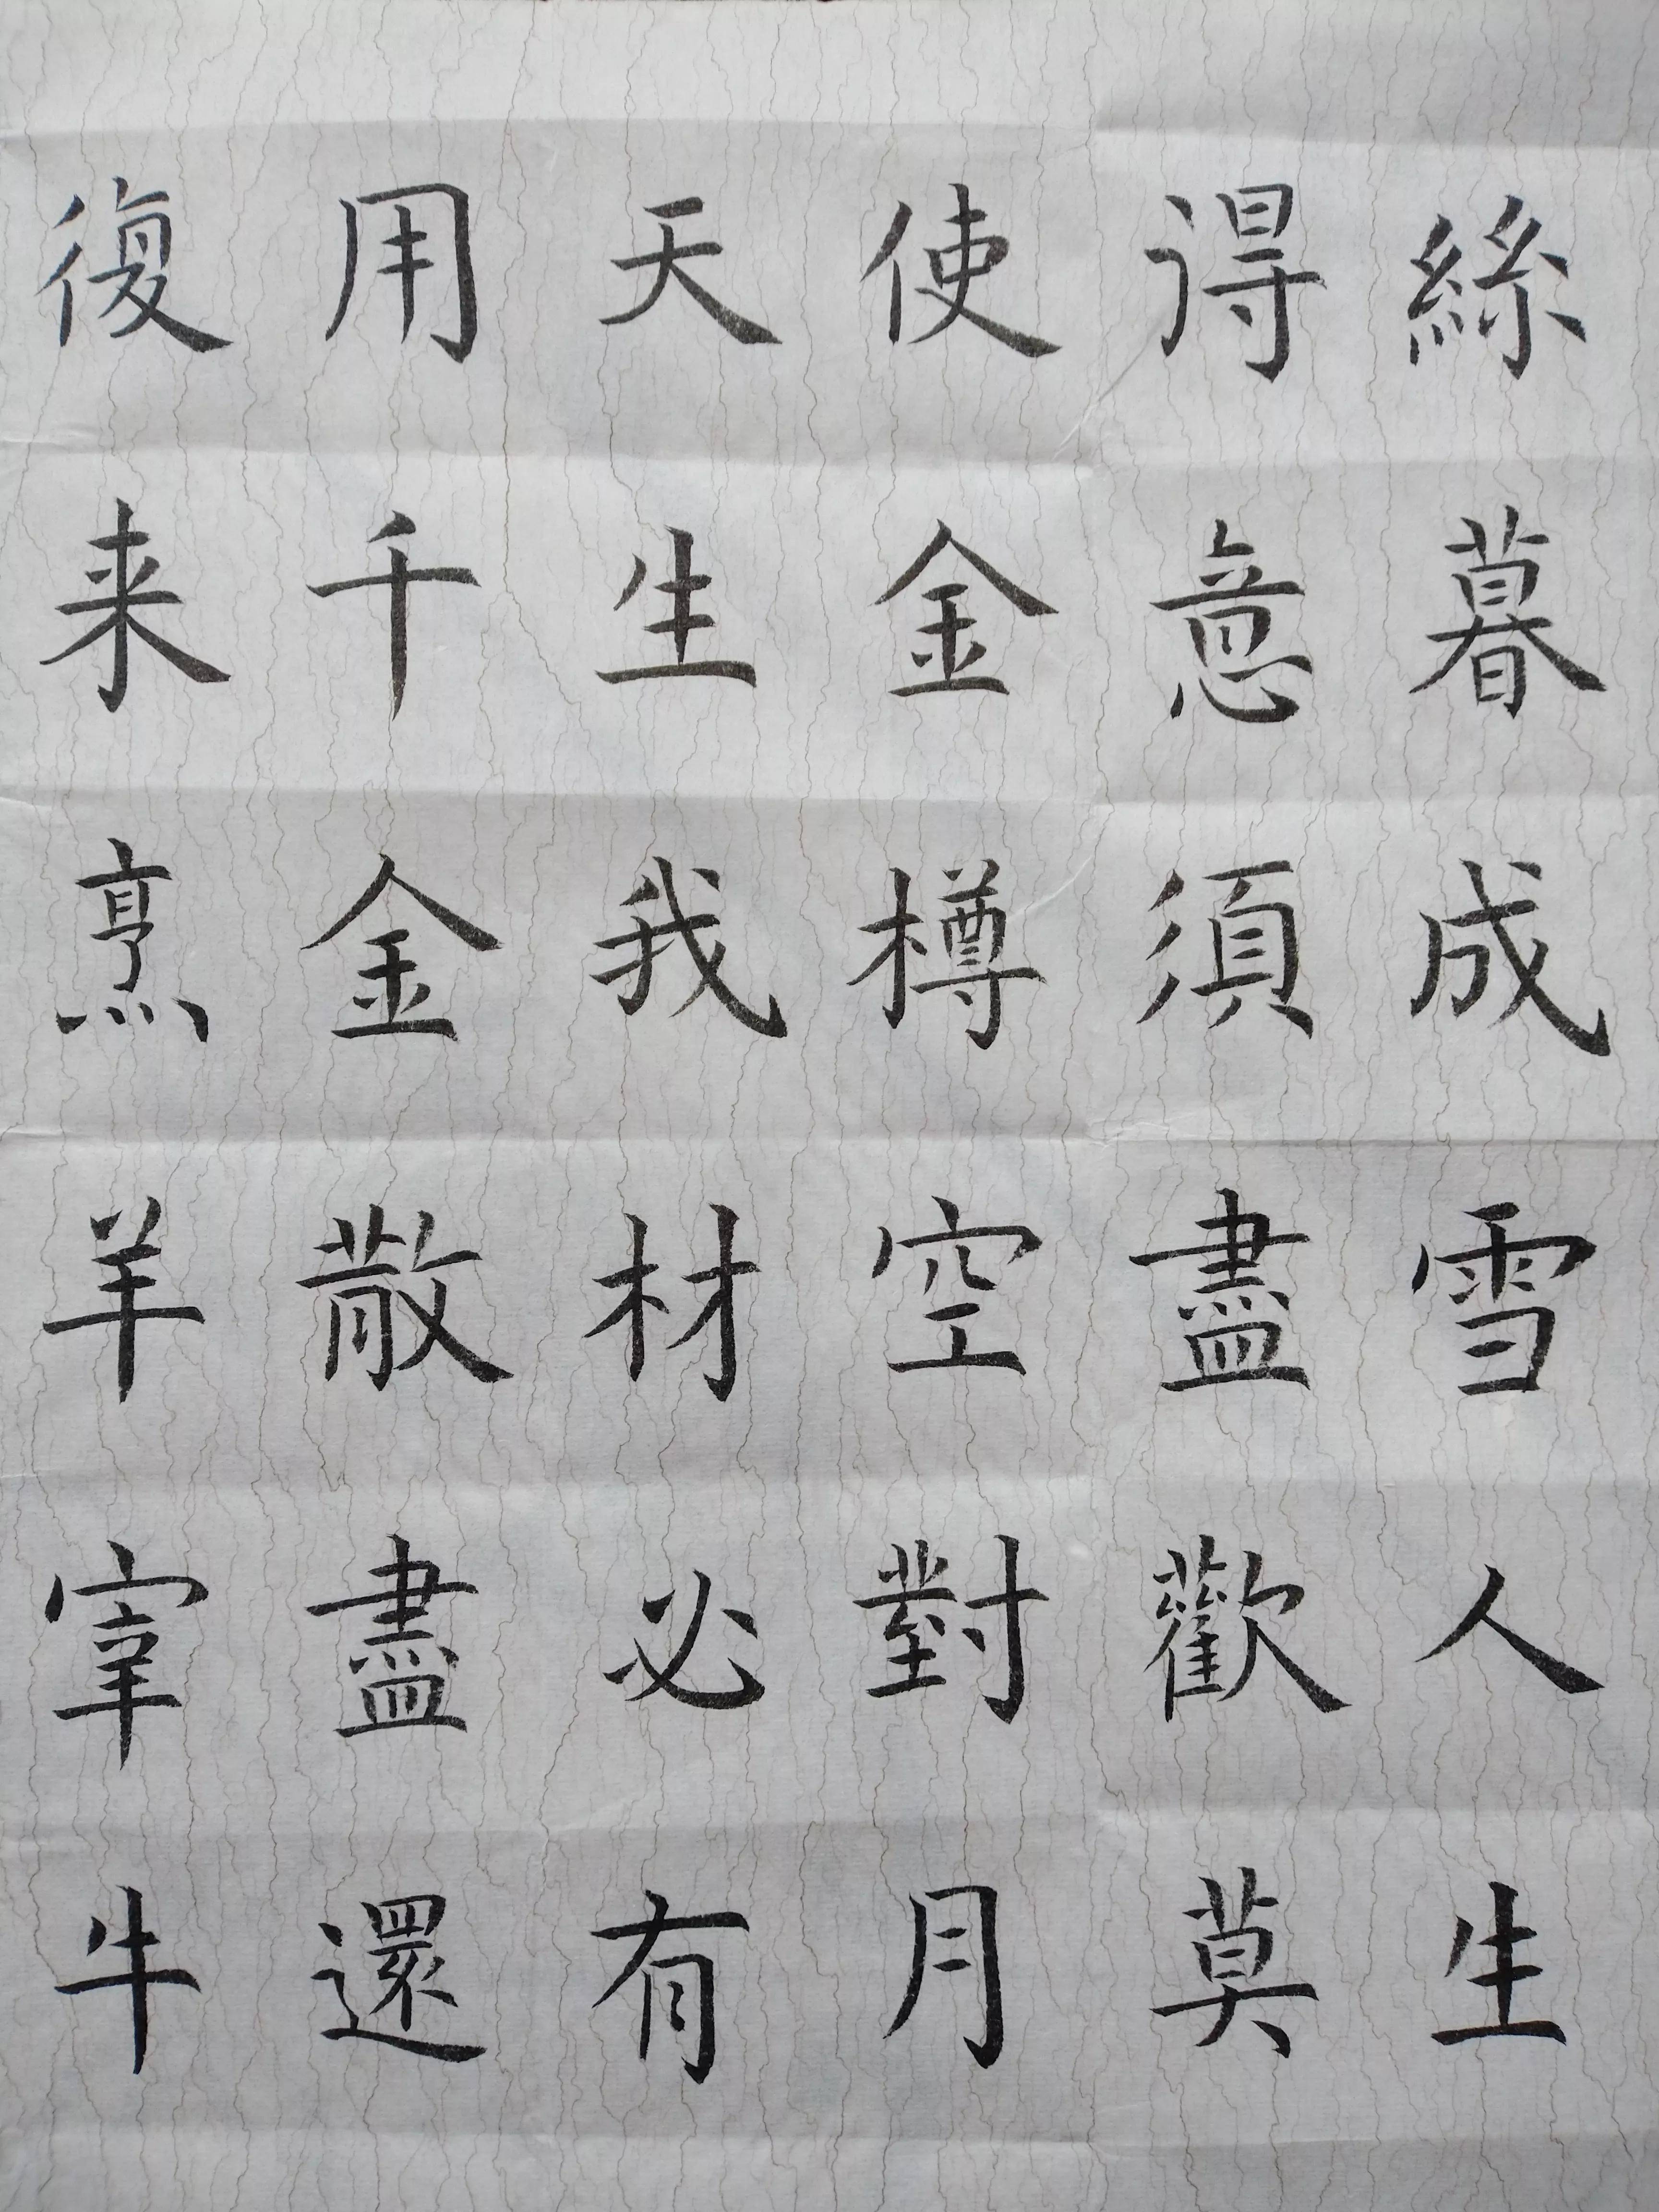 絲暮成雪人生
得意須盡歡莫
使金樽空對月
天生我材必有
用千金散盡還
復来烹羊宰牛